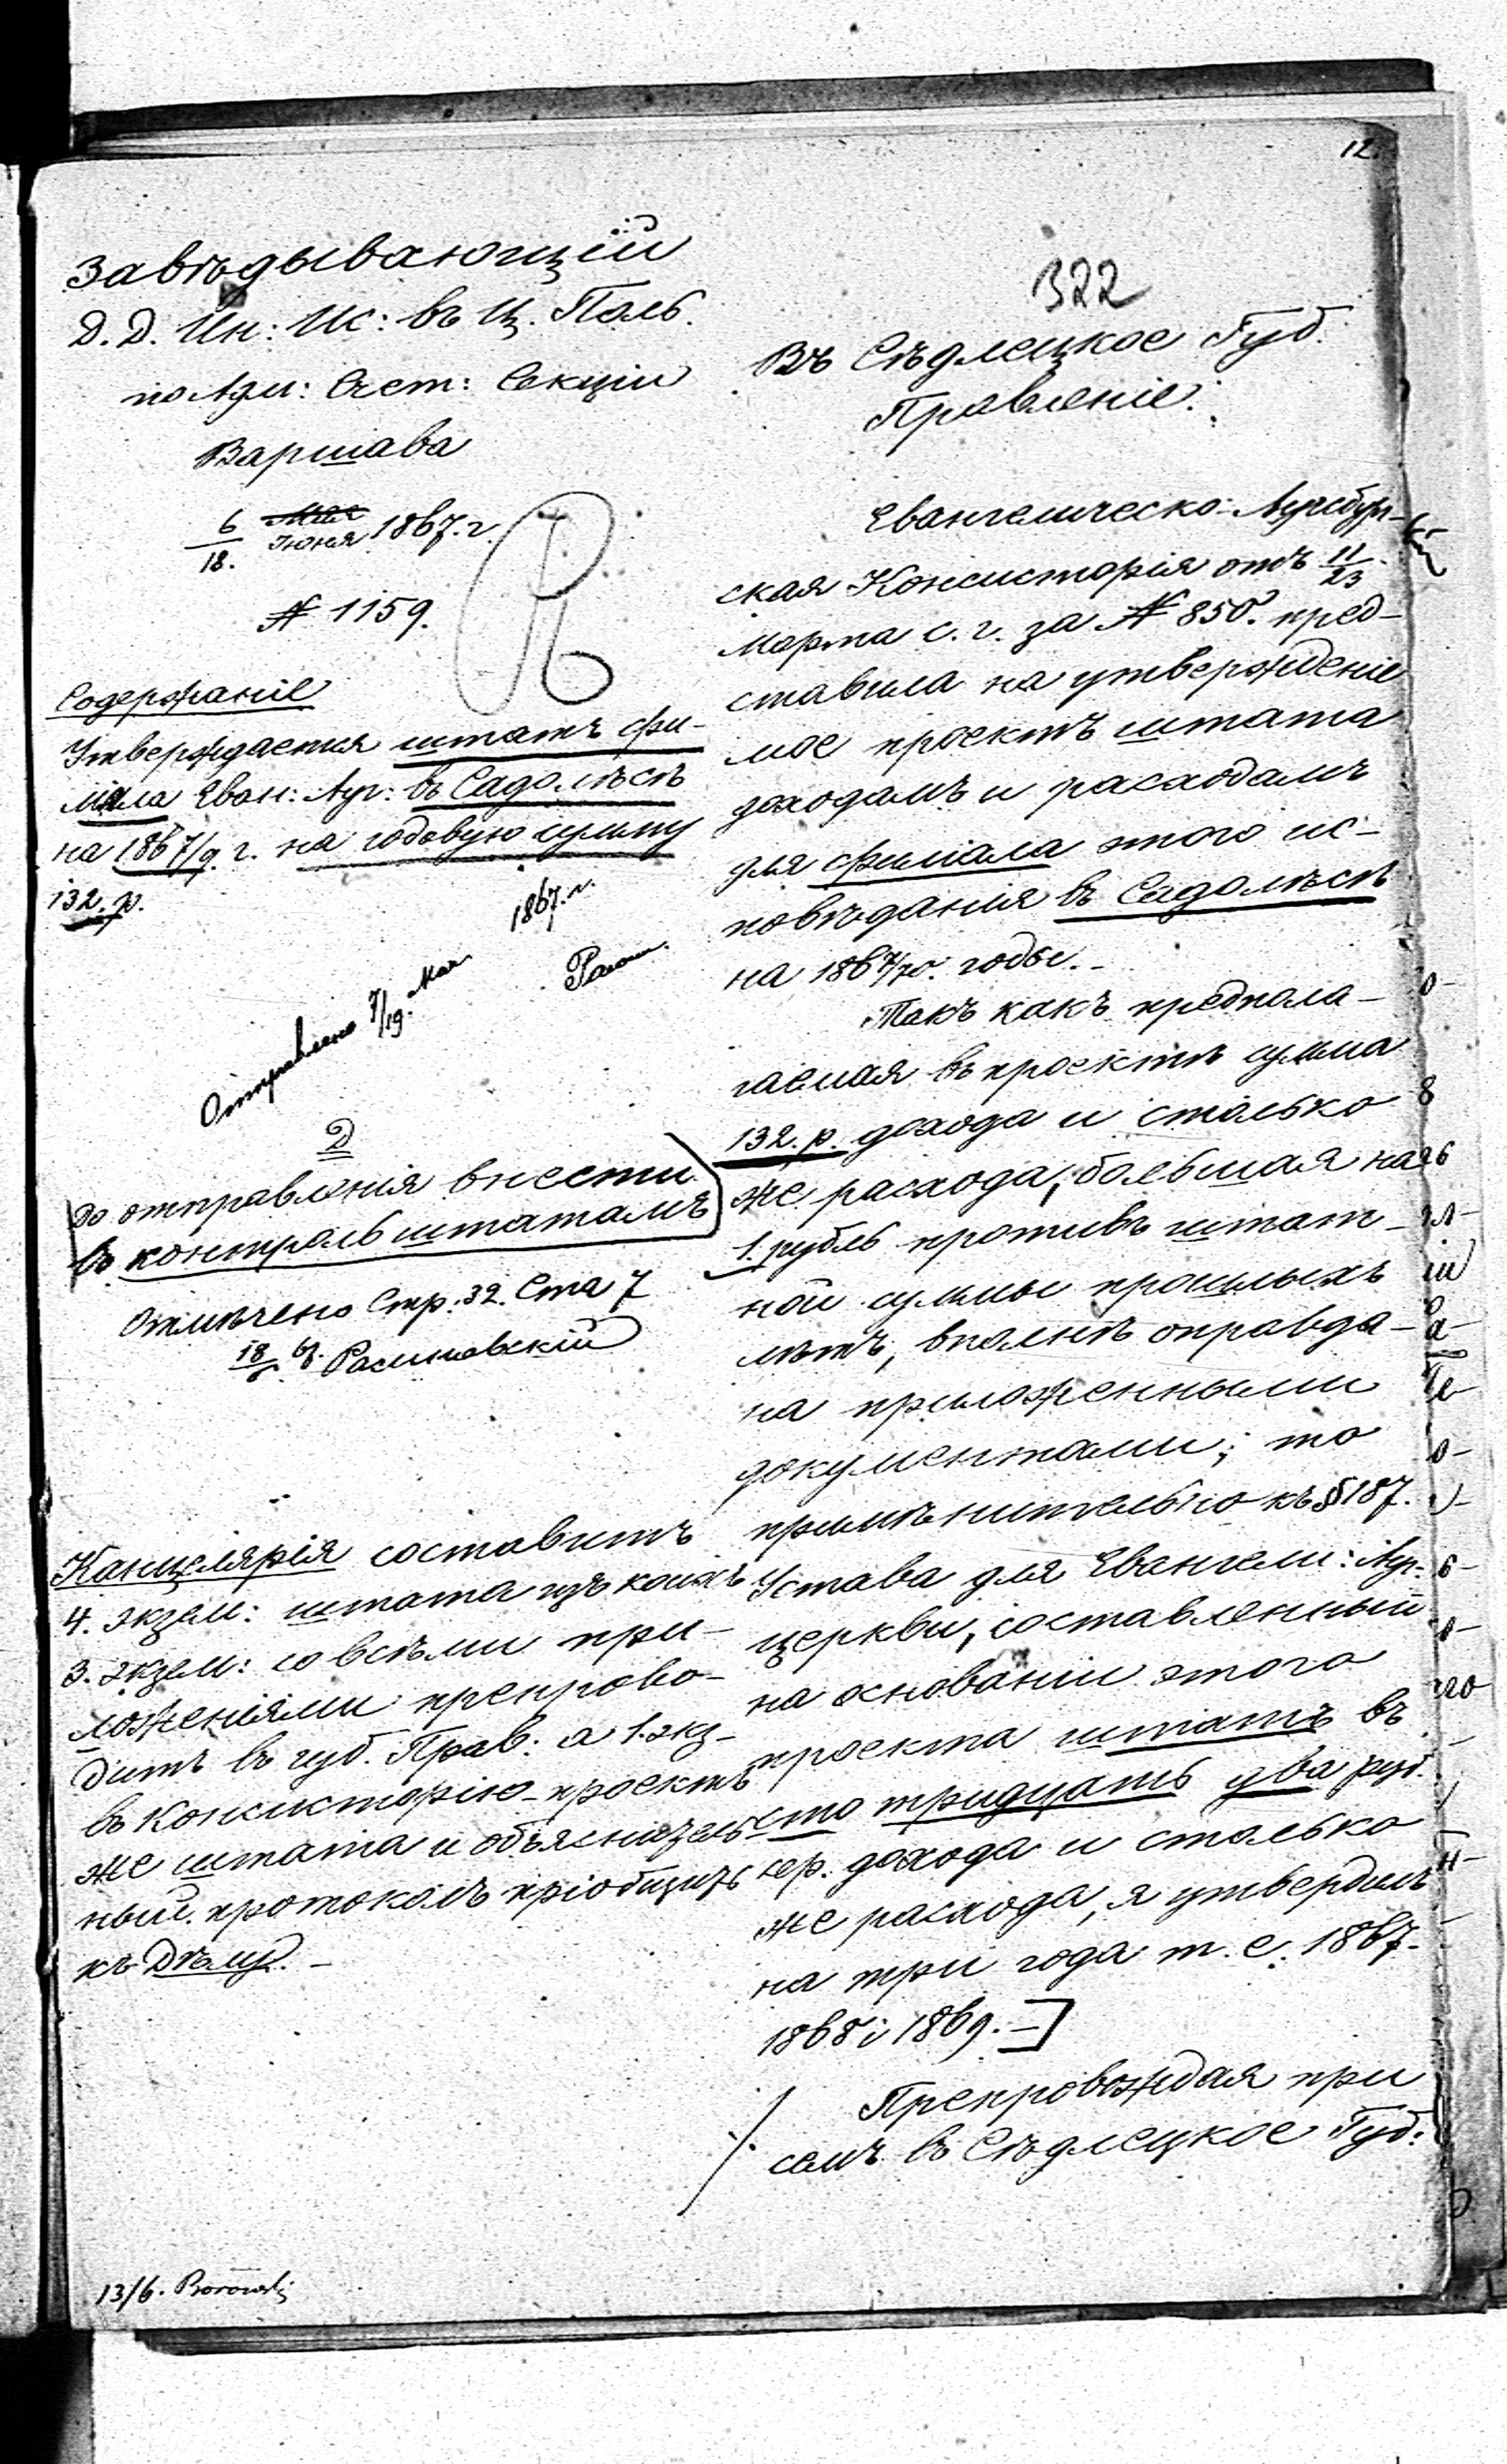 12.
Завѣдывающій
Д. Д. Ин: Ис: въ Ц. Поль.
по Адм: Счет: Секціи
Варшава
6/18. Мая Іюня 1867. г.
№ 1159.
Содержаніе
Утверждается штатъ фи-
ліала Еван: Ауг: въ Садолѣсѣ
на 1867/9 г. на годовую сумму
132. р.
Отправлено 7/19. Мая. 1867. г.
Д
До отправленія внести
въ контроль штатамъ
Отмѣчено Стр: 32. Ста 7
18/6 67.
Канцелярія составитъ
4. экзем: штата изъ коихъ
3. экзем: со всѣми при-
ложеніями препрово-
дитъ въ Губ. Прав: а 1. экз-
въ Консисторію - проектъ
же штата и объяснитель-
ный протоколъ пріобщить
къ Дѣлу. -
13/6. Borowski
322
Въ Сѣдлецкое Губ.
Правленіе.
Евангелическо: Аугсбург-
ская Консисторія отъ 11/23
Марта с. г. за № 850. пред-
ставила на утвержденіе
мое проектъ штата
доходамъ и расходамъ
для филіала этого ис-
повѣданія въ Садолѣсѣ
на 1867/70. годы. -
Такъ какъ предпола-
гаемая въ проектѣ сумма
132. р. дохода и столько
же расхода, большая на
1. рубль противъ штат-
ной суммы прошлыхъ
лѣтъ, вполнѣ оправда-
на приложенными
документами; то
примѣнительно къ § 187.
Устава для Евангели: Ауг.
церкви, составленный
на основаніи этого
проекта штатъ въ
сто тридцать два руб.
сер. дохода и столько
же расхода, я утвердилъ
на три года т. е. 1867.
1868 і 1869. -
Препровождая при
семъ въ Сѣдлецкое Губ: